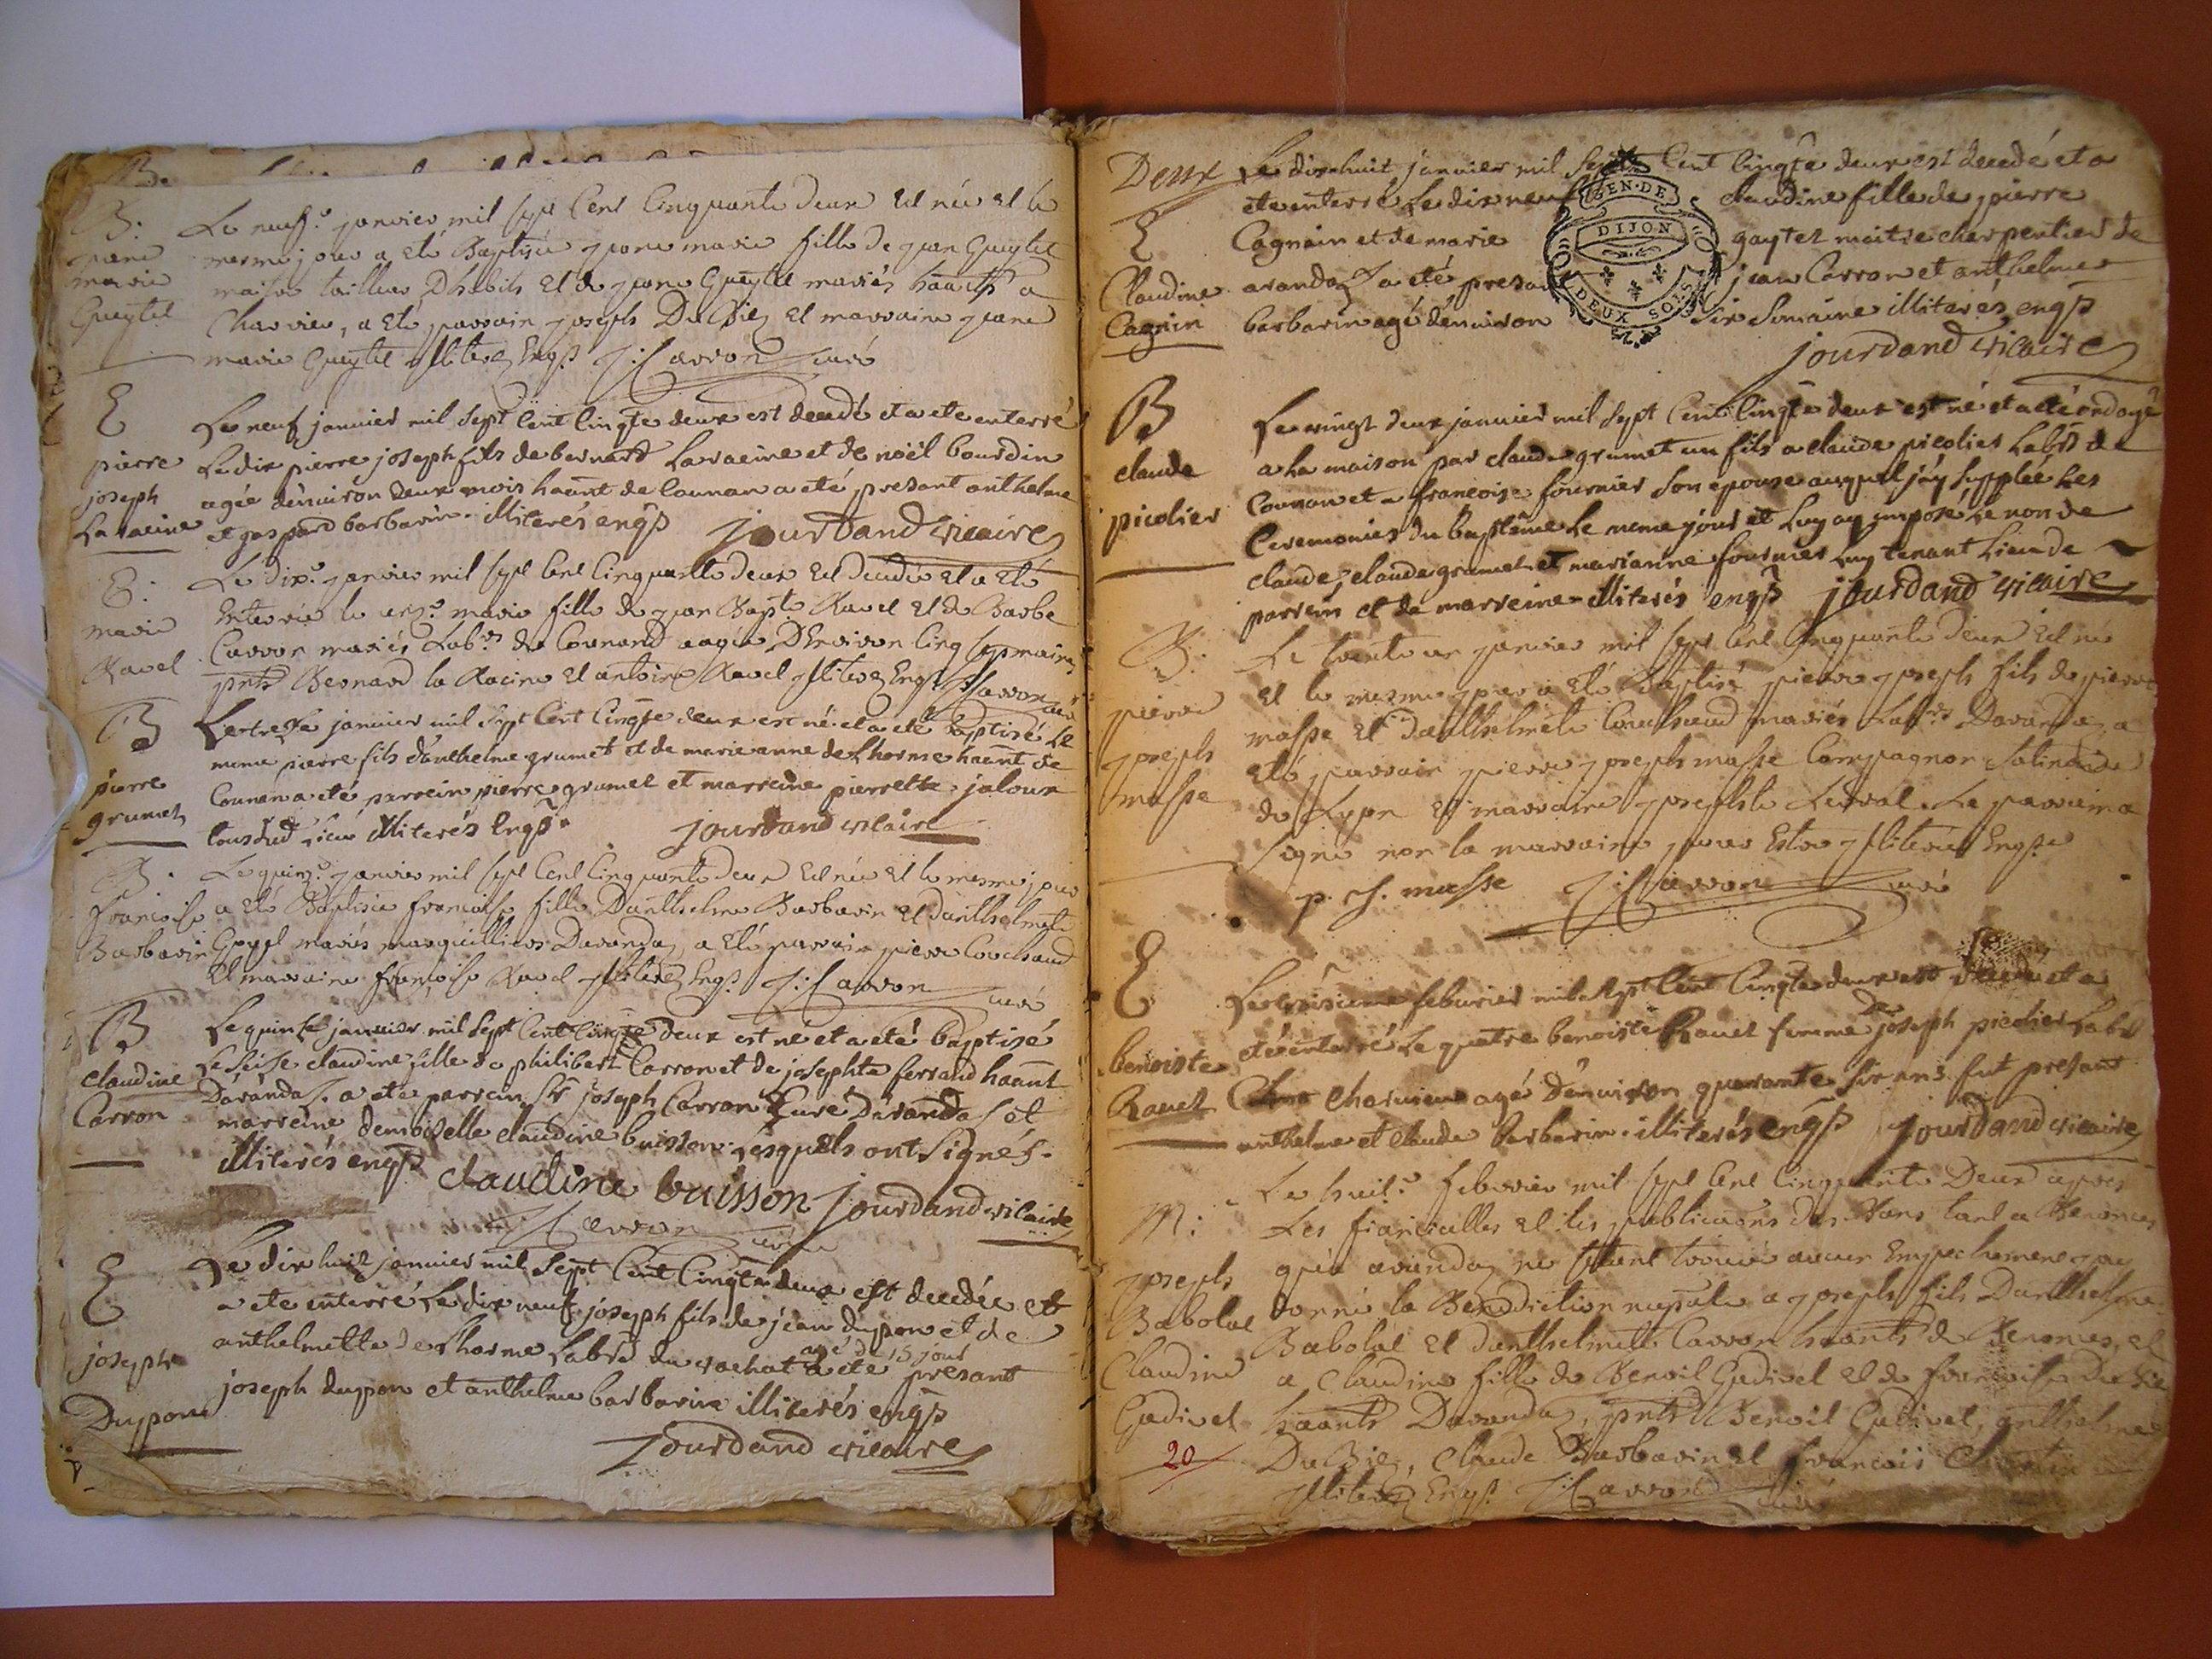 B.
B:
jeanne
marie
Gueytel
Le neufe janvier mil sept cent cinquante deux est née et le
mesme jour a eté Baptisée jeanne marie fille de jean Gueytel
maitre tailleur D'habits et de jeane Gueytel mariés haants a
Charvieu, a eté parrain joseph DuBiez et marraine jeane
marie Gueytel illiterez Enqs J: Carron curé
E
pierre
joseph
Laracine
Le neuf janvier mil sept Cent Cinqte deux est decedé et a ete enterré
Le dix pierre joseph fils de bernard Laracine et de noël bourdin
agée denuiron deux mois haant de Counan a eté presant anthelme
et gaspard barbarin. illiterés enqs jourdand vicaire
E:
marie
Ravel
Le dixe janvier mil sept cent cinquante deux est decedée et a eté
Enterrée le unze marie fille de jean Bapte Ravel et de Barbe
Carron mariés Labrs de Counand aagée D'Environ cinq sepmaines
pnts Bernard la Racine et antoine Ravel illiterez Enqs J: Carron curé
B
pierre
grumet
Le treze janvier mil sept Cent Cinqte deux est né et a eté baptisé Le
meme pierre fils d'anthelme grumet et de marie anne de Lhorme haant de
Counan a eté parrein pierre grumet et marreine pierrette jaloux
tous dud Lieu illiterés Enqs jourdand vicaire
B.
francoise
Barbarin
Le quinze janvier mil sept cent cinquante deux est née et le mesme jour
a eté Baptisée francoise fille D'anthelme Barbarin et d'anthelmete
Goyet mariés marguilliers Davandaz, a eté parrain pierre Couchaud
et marraine francoise Ravel illiterez Enqs J: Carron curé
B
claudine
Carron
Le quinze janvier mil sept Cent Cinqte deux est né et a eté baptisé
Le seise claudine fille de philibert Carron et de josephte ferrand haant
Daranda. a ete parrein Sr joseph Carron Curé Daranda et
marreine demoiselle claudine buisson. Lesquels ont signés.
illiterés enqs claudine buisson jourdand vicaire
J: Carron curé
E
joseph
Dupont
Le dix huit janvier mil Sept Cent Cinqte deux est decedée et
a ete enterré Le dix neuf joseph fils de jean dupon et de
anthelmette de Lhorme Labrs du rachat agé de 15 jour a eté presant
joseph dupon et anthelme barbarin illiterés enqs
jourdand vicaire
Deux
E
Claudine
Cagnin
Le dix huit janvier mil Sept Cent Cinqte deux est decedé et a
ete enterré Le dix neuf claudine fille de pierre
Cagnain et de marie gaytet maitre charpentier de
arandaz a eté presant jean Carron et anthelme
barbarin agé denuiron Six Semaine illiterés enqs
jourdand vicaire
GEN. DE
DIJON
DEUX SOLS
B
claude
picolier
Le vingt deux janvier mil sept Cent Cinqte deux est né et a eté ondayé
a La maison par claude grumet un fils a claude picolier Labrs de
Counan et a francoise fournier Son epouse auquel jáy Supplée Les
Ceremonies du baptême Le meme jour et Luy ay imposé Le non de
claude, claude grumet et marianne fournier Luy tenant Lieu de
parrein et de marreine illiterés enqs jourdand vicaire
B.
pierre
joseph
masse
Le trente un janvier mil sept cent cinquante deux est né
et le mesme jour a eté Baptisé pierre joseph fils de pierre
masse et d'anthelmete Couchoud mariés Labrs Davandaz, a
eté parrain pierre joseph masse Compagnon
de Lyon et marraine josephte Ledval. Le parrain a
signé non la marraine pour Estre illiterée Enqse
p. j. masse J: Carron curé
E
benoiste
Rauet
Le troisieme feburier mil sept Cent Cinqte deux est decedé et a
eté enterré Le quatre benoiste Rauet femme de joseph picolier Labrs
Charuieux agé denuiron quarante Six ans fut presant
anthelme et claude barbarin. illiterés enqs jourdand vicaire
M:
joseph
Babolat
Claudine
Gudivet
20
Le huite febvrier mil sept cent cinquante Deux apres
Les fiancialles et les publications des Bans tant a Benonces
qu'a avandaz ne s'etant trouvé aucun Empechement jay
donné la Benediction nuptiale a joseph fils D'anthelme
Babolat et d'anthelmete Carron haants de Benonces, et
a Claudine fille de Benoit Gudivet et de francoise DuBiez
haants Davandaz, pnts Benoit Gudivet, anthelme
DuBiez, Claude Barbarin et francois
illiterez Enqs J: Carron curé